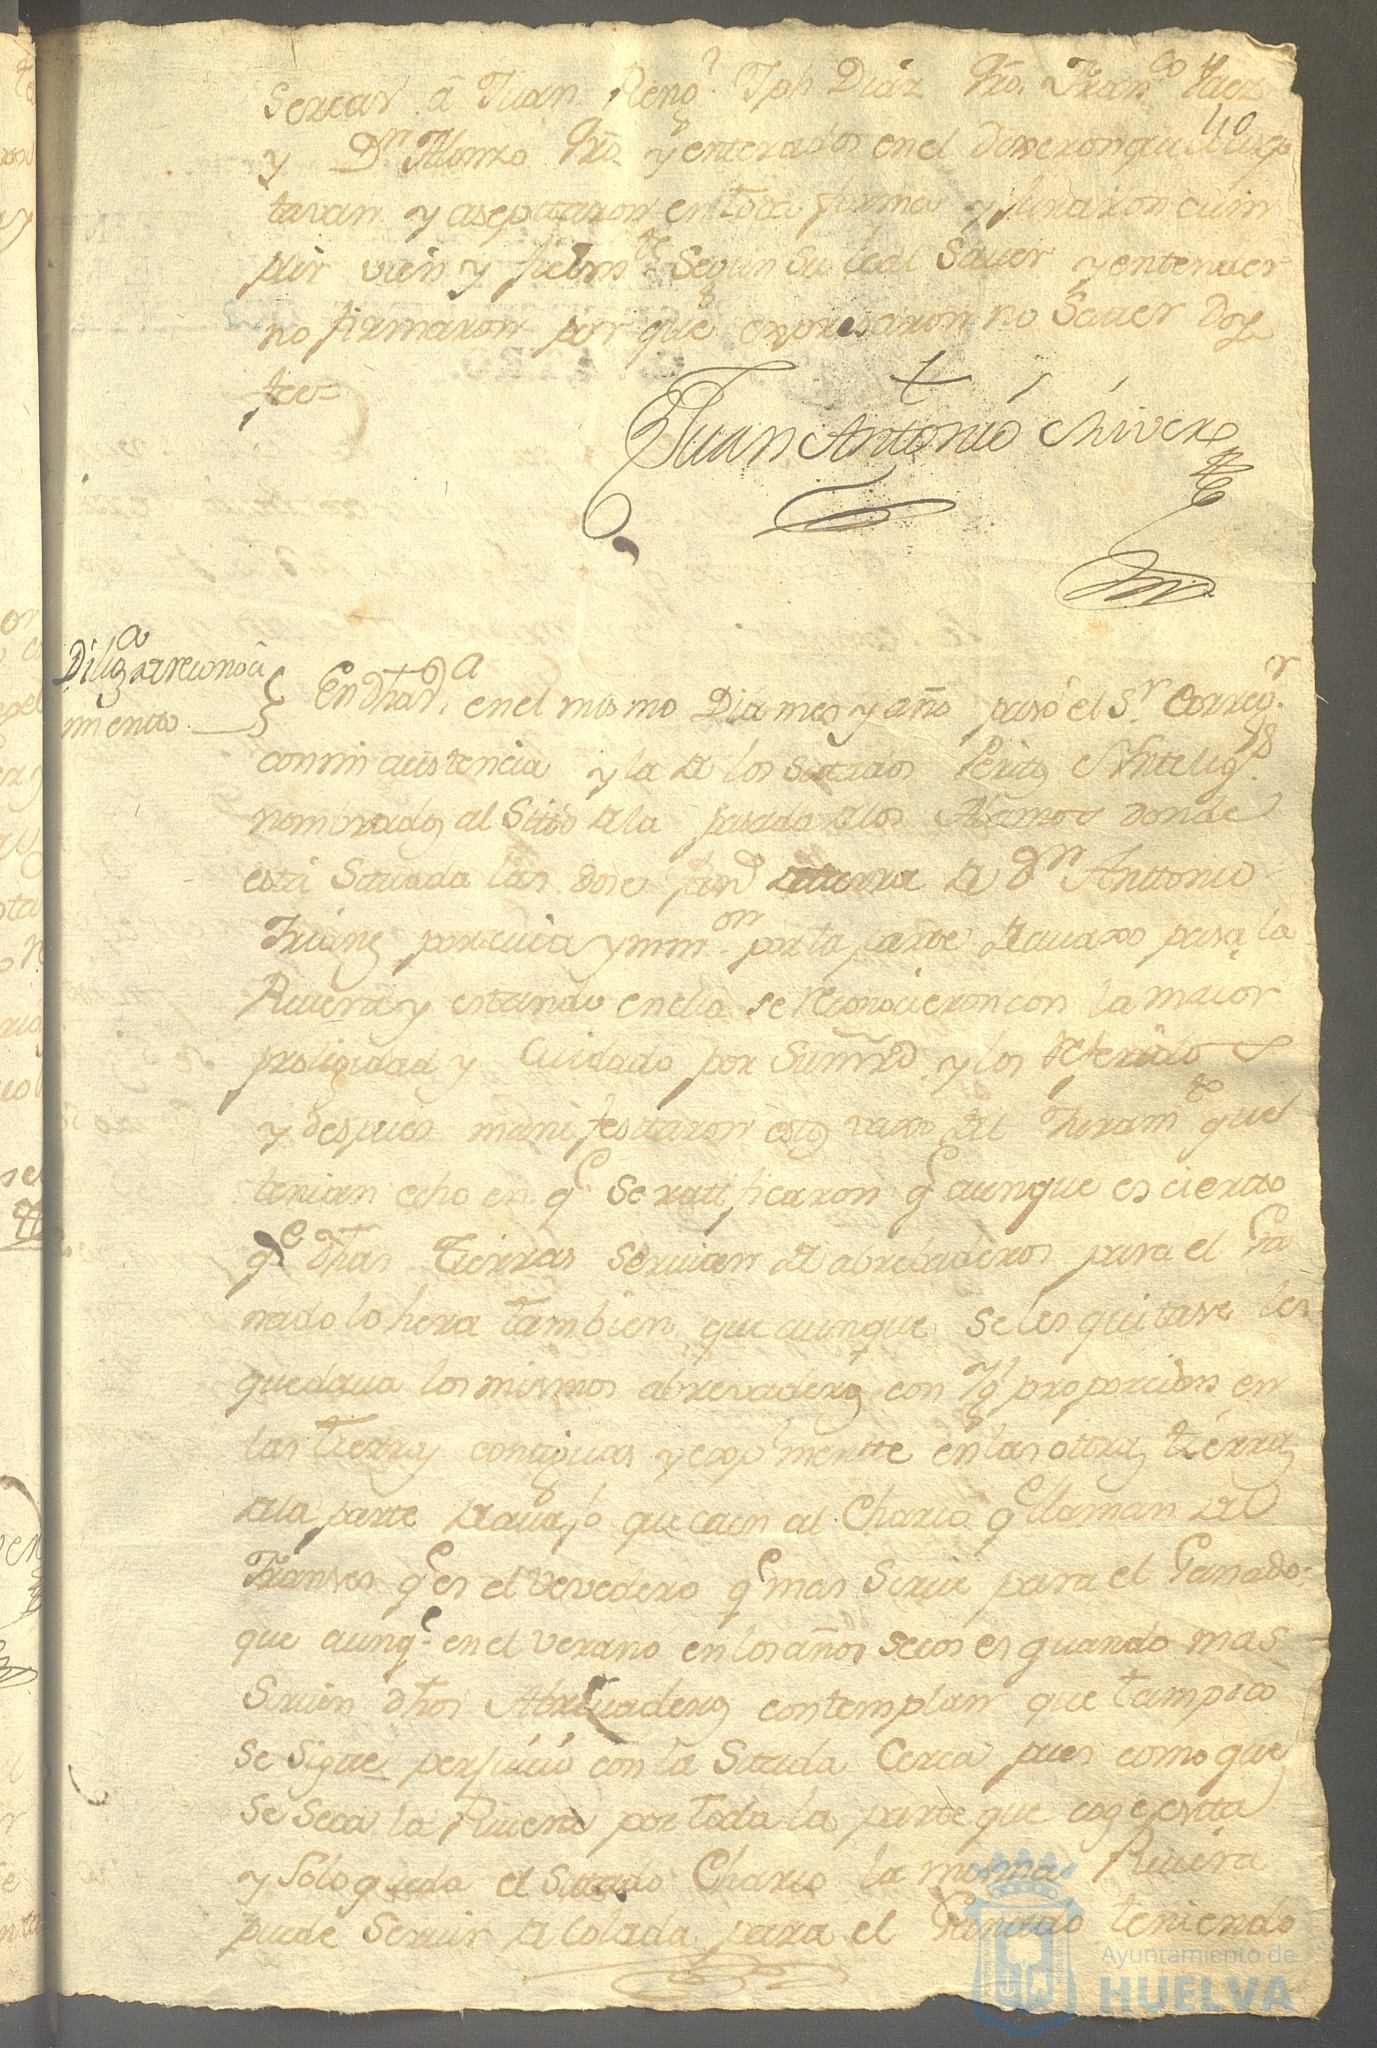 sercar â Juan Reng.l Jph Diaz Pro. Fran.co Vaez
40
y D.n Alonzo Pro. y enterados en el dixeron que
tavan y aseptaron en toda forma y juraron cum
plir vien y fielm.te Segun Su leal Saver y entender
no firmaron por que expresaron no Saver Doy
fee=
Juan Antonio Chivere
Dilig.a de reconoci
miento
En dha V.a en el mismo Dia mes y año pasó el S.r Correg.r
con mi asistencia y la de los sitados Peritos Yntelig.s
nombrados al Sitio de la pasada de los Alamos donde
está Situada las dose fan.s de tierra de D.n Anttonio
Trianes por cuia y mm.on por la parte de avaxo pasa la
Rivera y estando en ella se reconocieron con la maior
prolixidad y Cuidado por Su mrd. y los referidos
y despues manifestaron estos vaxo del Juram.to que
tenian echo en q.e Se ratificaron q.e aunque es cierto
q.e dhas Tierras Servian de abrebaderos para el Ga
nado lo hera tambien que aunque Se les quitase les
quedava los mismos abrevaderos con proporcion en
las tierras contiguas y expl mente en las otras tierras
de la parte de avajo que caen al Charco q.e llaman del
Transes q.e es el Vevedero q.e mas Sirve para el Ganado=
que aunq.e en el verano en los años secos es quando mas
Sirven dhos Abrevaderos contemplan que tampoco
Se Sigue perjuicio con la Sitada Cerca pues como que
Se Seca la Rivera por toda la parte que coge esta
y Solo queda el Sitado Charco la misma Rivera
puede Servir de Colada para el Ganado teniendo
Ayuntamiento de
HUELVA